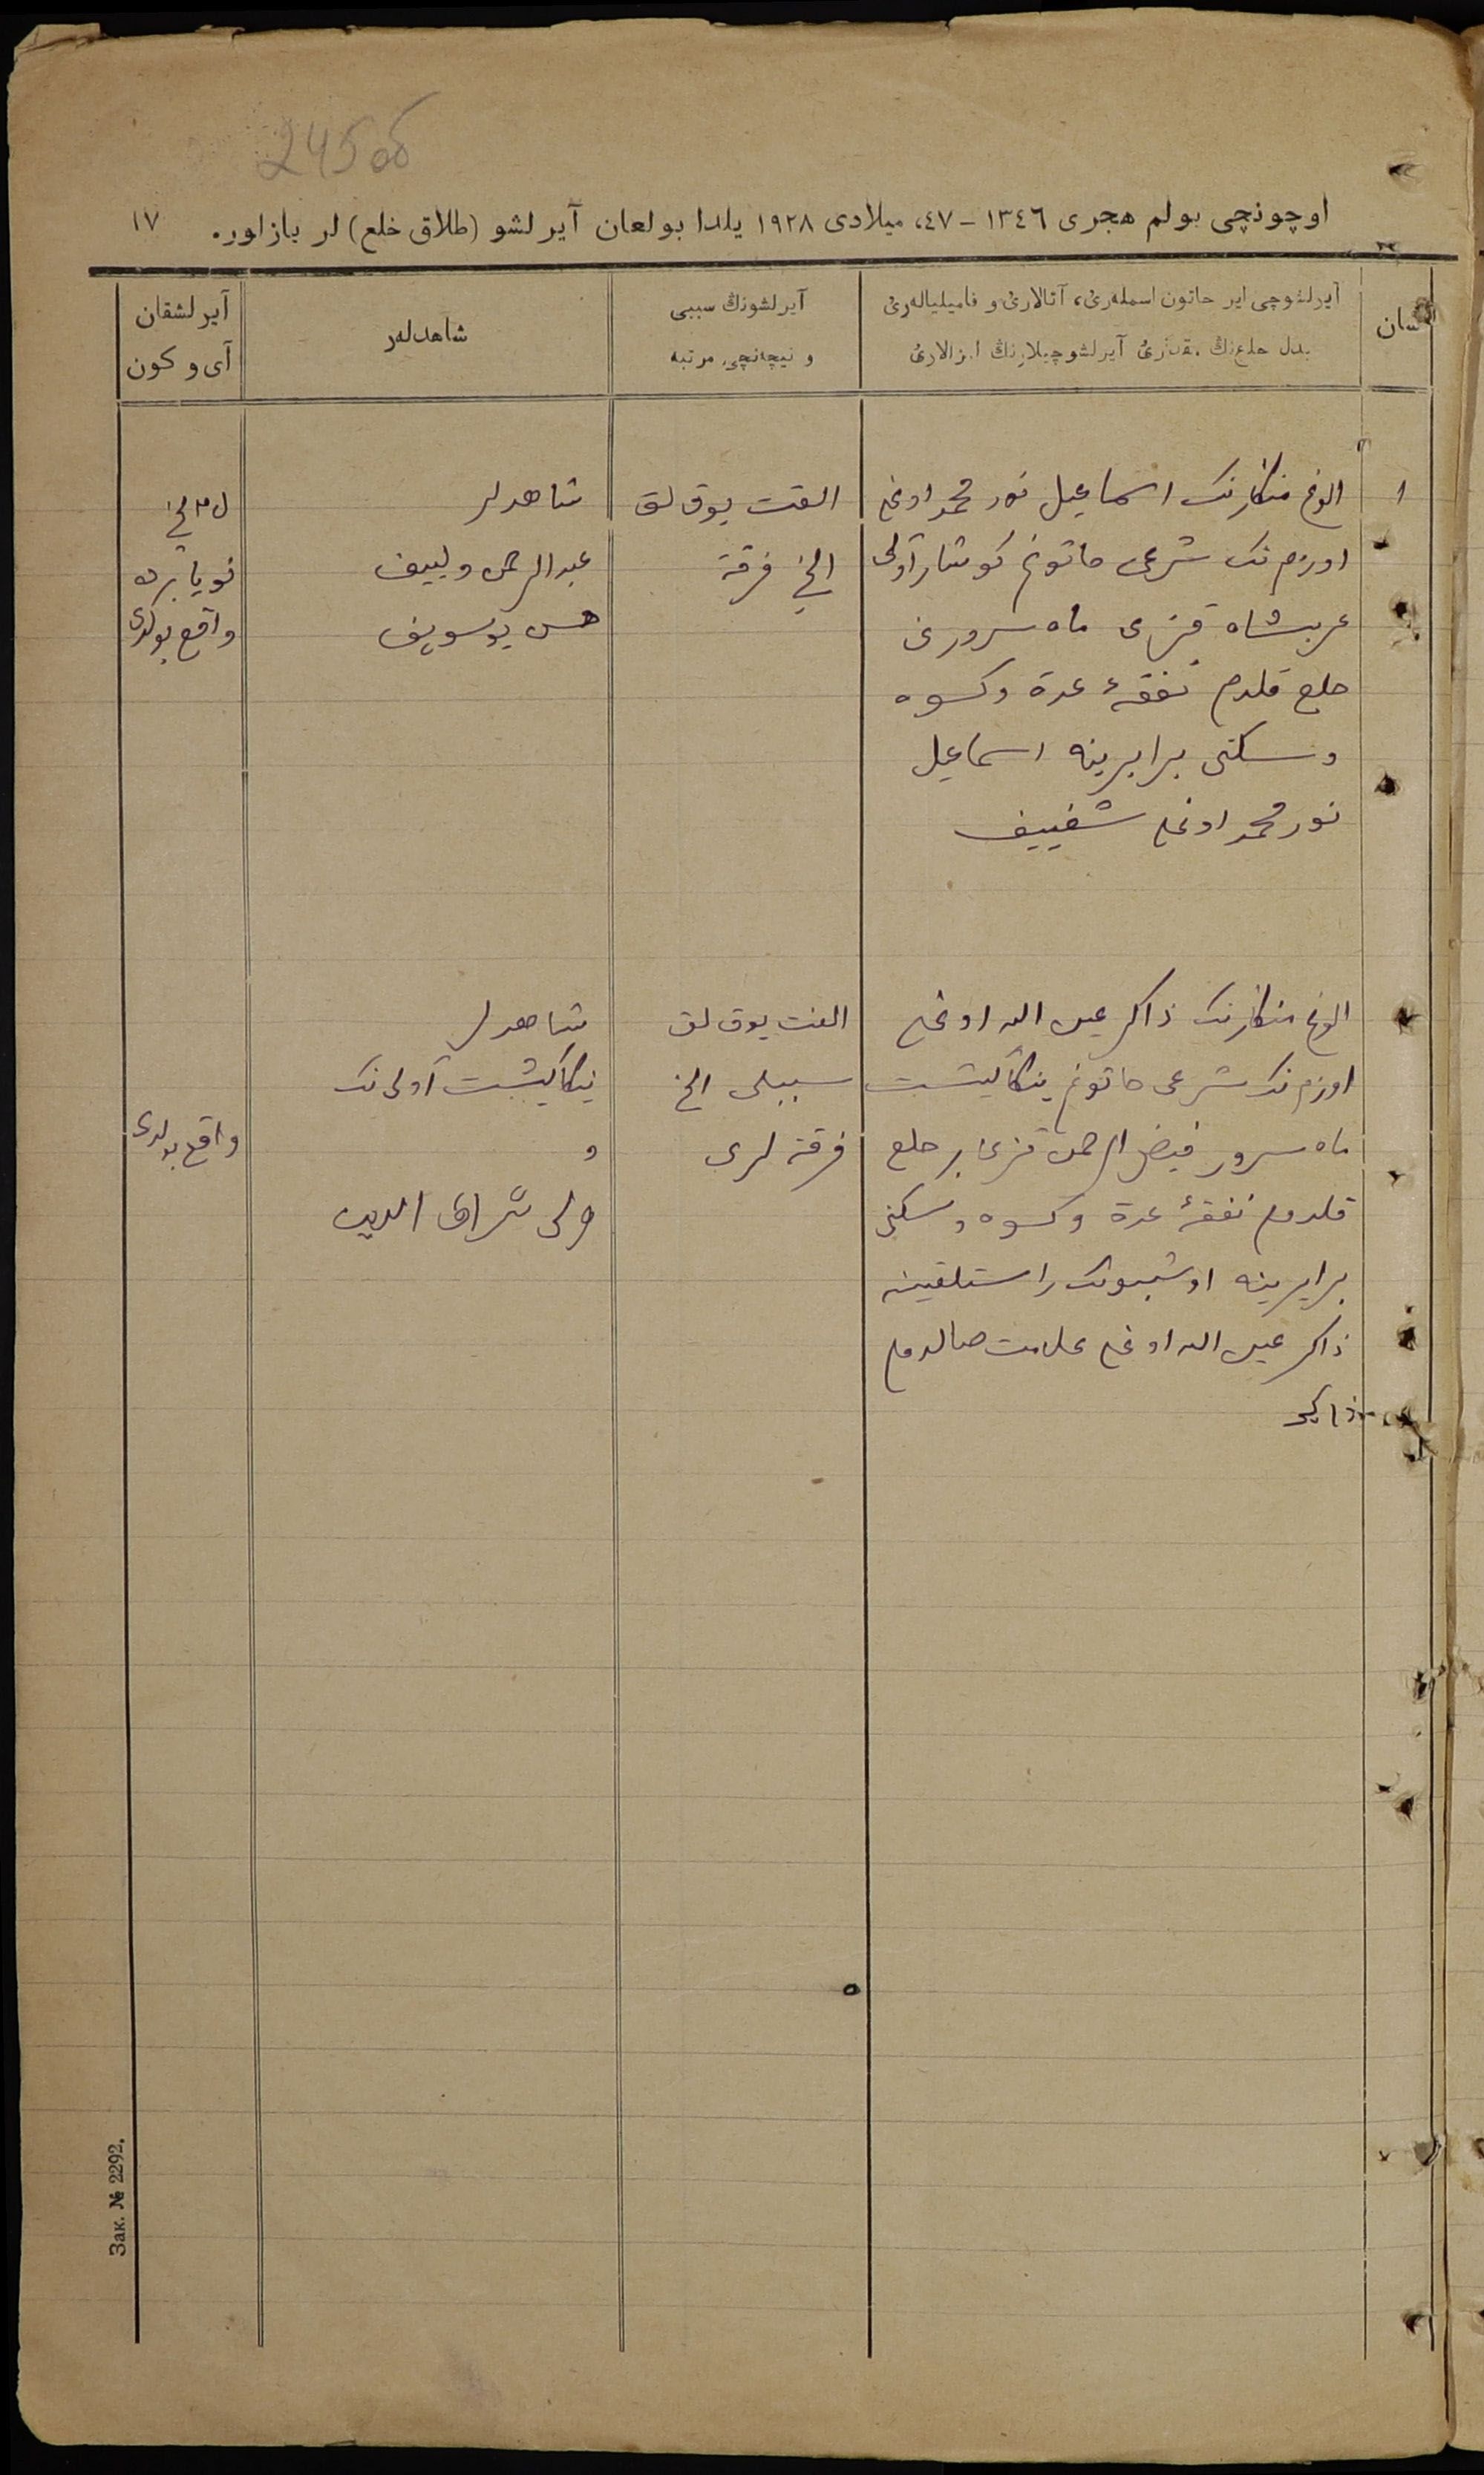 245 об
اوچونچی بولم هجری ١٣٤٦ - ٤٧، میلادی ١٩٢٨ یلدا بولعان آیرلشو (طلاق خلع) لر یازلور. ١٧
سان
آیرلشوچی ایر خاتون اسملەرئ، آتالارئ و فامیلیالەرئ
بدل خلع‌نڭ قدرئ آیرلشوچیلارنڭ امزالارئ
آیرلشونڭ سببی
و نیچەنچی مرتبه
شاهدلەر
آیرلشقان
آی و کون
١
الوغ منكارنك اسماعیل نور محمد اوغلی
اوزم نك شرعی خاتونم كوشار آولی
عربشاه قزی ماه سرورنی
خلع قلدم نفقۀ عدة وکسوه
وسکنی برابرینه اسماعیل
نور محمد اوغلی شفییف
الفت یوق لق
الخ فرقة
شاهدلر
عبد الرحمن ولییف
حسن یوسویف
نویابرده
واقع بولدی
الوغ منكارنك ذاكر عبد الله اوغلی
اوزم نك شرعی خاتونم
ماه سرور فیض الرحمن قزی بر خلع
قلدم نفقۀ عدة وکسوه وسکنی
برابرینه اوشبونك راستلقینه
ذاكر عبد الله اوغلی علامت صالدم
ذاكر
الفت یوق لق
سببلی الخ
فرقة لری
شاهدلر
آولی نك
و
ولی شراف الدین
واقع بولدی
Зак. № 2292.